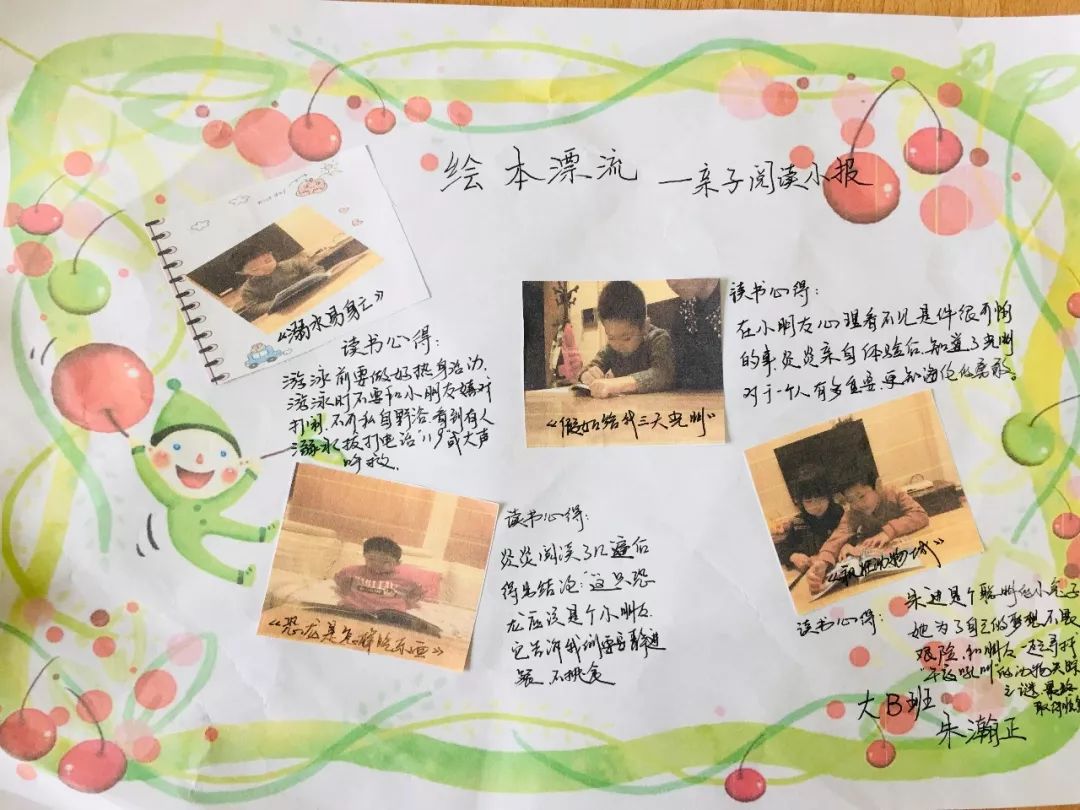 绘本漂流 —亲子阅读小报
《溺水易身亡》
读书心得：
游泳前要做好热身活动，
游泳时不要和小朋友嬉戏
打闹，不可私自野浴，看到有人
溺水拨打电话"119"或大声
呼救。
《假如给我三天光明》
读书心得：
在小朋友心理看不见是件很可怕
的事，炎炎亲自体验后，知道了光明
对于一个人有多重要，更知道他的
《恐龙是怎样吃东西》
读书心得：
炎炎阅读了几遍后
得出结论："这只恐
龙应该是个小朋友
它告诉我们要
不挑食
《疯狂动物城》
读书心得：
朱迪是个聪明的小兔子
她为了自己的梦想不畏
艰险，和朋友一起寻找
午夜吼叫"的动物失踪
之谜，最终
取得
大B班
朱瀚正